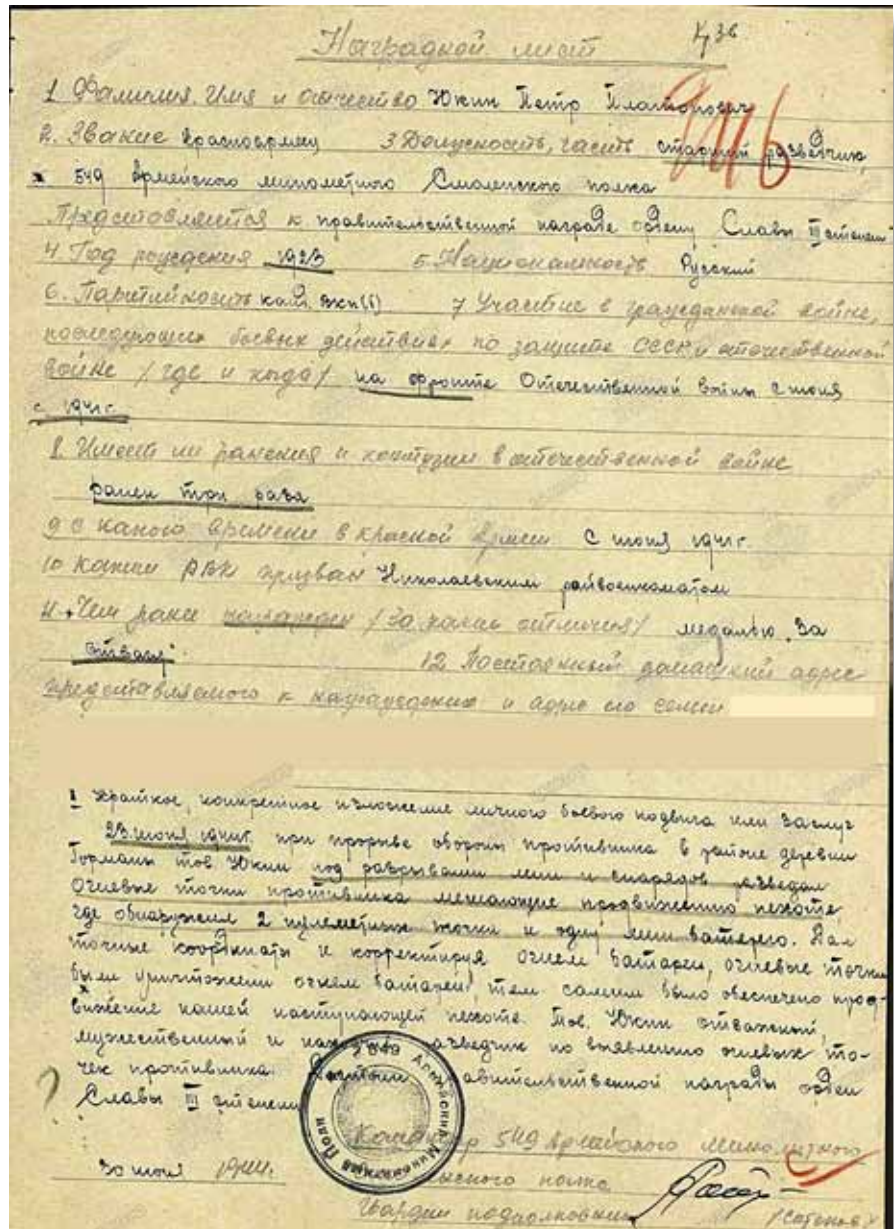 Наградной лист
1 Фамилия. Имя и отчество Юкин Петр Платонович
2. Звание красноармеец 3 Должность, часть старший разведчик
549 Армейского минометного Смоленского полка
Представляется к правительственной награде ордену Славы III степени
4 Год рождения 1923 5. Национальность Русский
6. Партийность канд. вкп(б) 7 Участие в гражданской войне,
последующих боевых действиях по защите СССР и отечественной
войне / где и когда / на фронте Отечественной войны с июня
с 1941г.
8. Имеет ли ранения и контузии в отечественной войне
ранен три раза
9 с какого времени в красной армии с июня 1941г.
10 Каким РВК призван Николаевским райвоенкоматом
11. Чем ранее награжден / за какие отличия / медалью „За
отвагу". 12 Постоянный домашний адрес
представляемого к награждению и адрес его семьи
I Краткое, конкретное изложение личного боевого подвига или заслуг
23 июня 1944г. при прорыве обороны противника в районе деревни
тов. Юкин под разрывами мин и снарядов разведал
огневые точки противника мешающие продвижению пехоте,
где обнаружил 2 пулеметных точки и одну мин батарею. Дал
точные координаты и корректируя огнем батареи, огневые точки
были уничтожены огнем батареи, тем самым было обеспечено прод-
вижение нашей наступающей пехоте. Тов. Юкин отважный,
мужественный и разведчик по выявлению огневых то-
чек противника. награды орден
Славы III степени
Командир 549 Армейского минометного
30 июня 1944г. полка
Гвардии подполковник
549 Армейский Минометный Полк